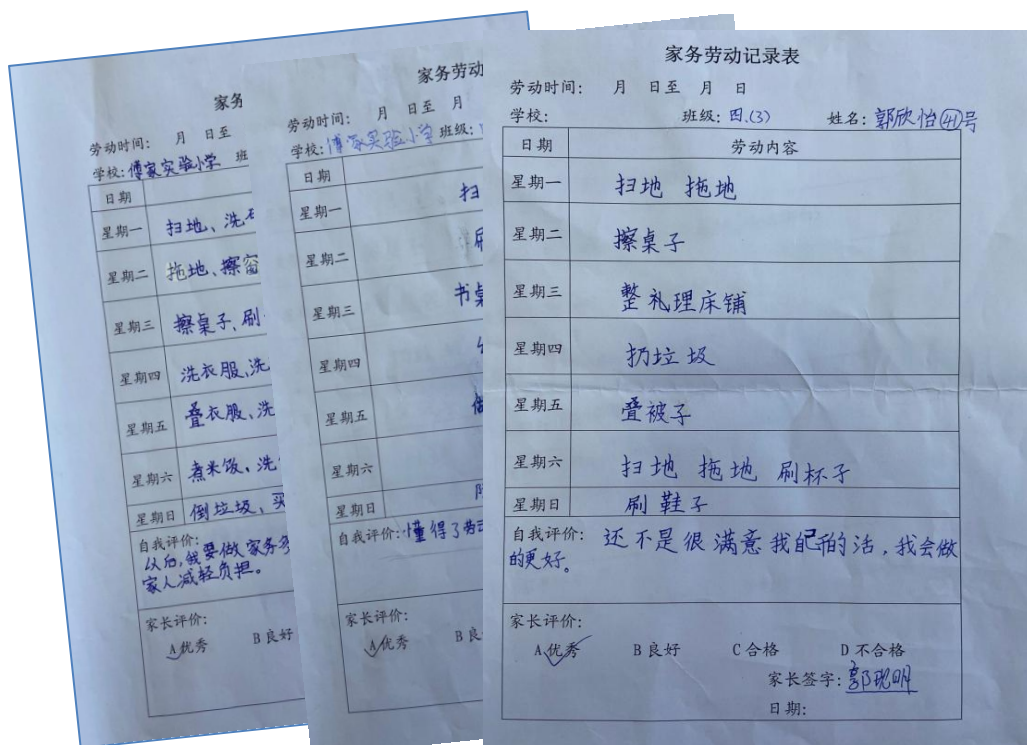 家务
劳动时间： 月 日至
学校：傅家实验小学 班
日期
星期一 扫地、洗
星期二 拖地、擦窗
星期三 擦桌子、刷
星期四 洗衣服、洗
星期五 叠衣服、洗
星期六 煮米饭、洗
星期日 倒垃圾、买
自我评价：
以后，我要做家务
家人减轻负担。
家长评价：
A优秀 B良好
家务劳动
劳动时间： 月 日至 月
学校：傅家实验小学 班级：
日期
星期一 扫
星期二 刷
星期三 书桌
星期四
星期五 做
星期六
星期日
自我评价：懂得了劳动
家长评价：
A优秀 B良
家务劳动记录表
劳动时间： 月 日至 月 日
学校： 班级：四.(3) 姓名：郭欣怡㊶号
日期 劳动内容
星期一 扫地 拖地
星期二 擦桌子
星期三 整礼理床铺
星期四 扔垃圾
星期五 叠被子
星期六 扫地 拖地 刷杯子
星期日 刷鞋子
自我评价： 还不是很满意我自己干的活，我会做
的更好。
家长评价：
A优秀 B良好 C合格 D不合格
家长签字：郭现明
日期：